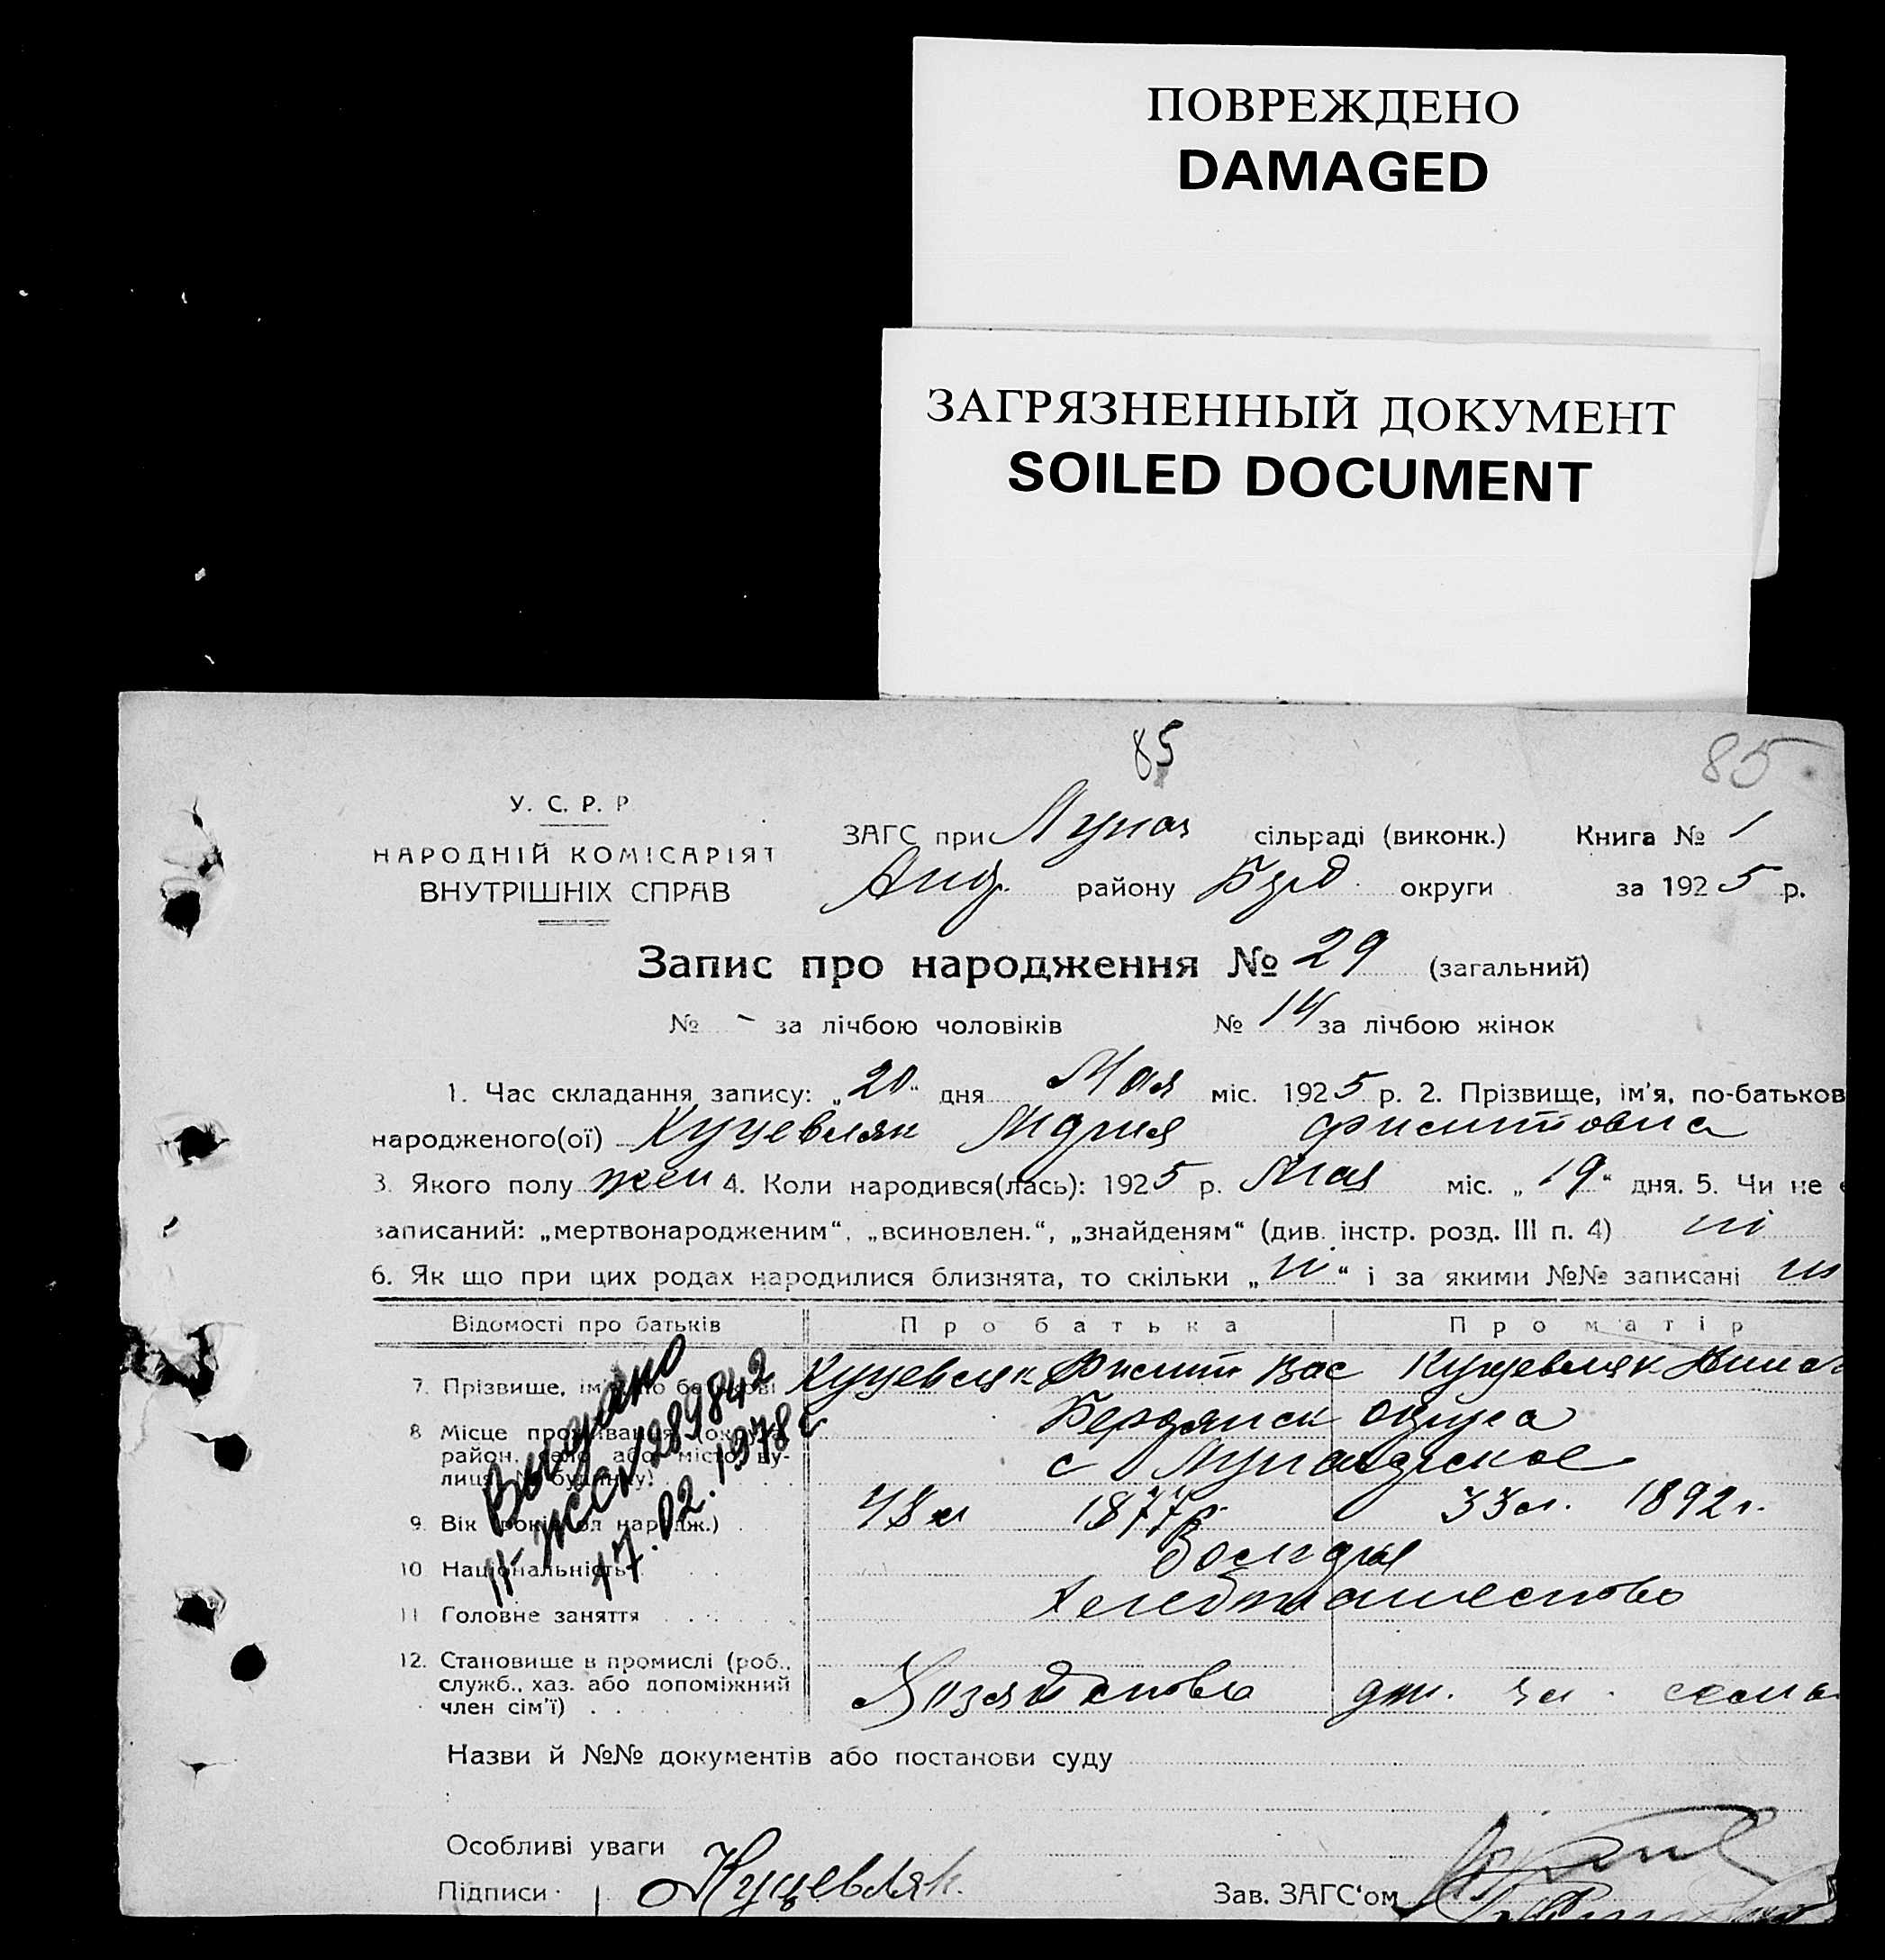 ПОВРЕЖДЕНО
DAMAGED
ЗАГРЯЗНЕННЫЙ ДОКУМЕНТ
SOILED DOCUMENT
85
85
У. С. Р. Р
НАРОДНІЙ КОМІСАРІЯТ
ВНУТРІШНІХ СПРАВ
ЗАГС при сільраді (виконк.) Книга № 1
району округи за 1925 р.
Запис про народження № 29 (загальний)
№ - за лічбою чоловіків № 14 за лічбою жінок
1. Час складання запису: „20“ дня Мая міс. 1925 р. 2. Прізвище, ім'я, по-батьков
народженого(ої) Куцевляк Мария Филитовна
3. Якого полу жен 4. Коли народився(лась): 1925 р. Мая міс. „19“ дня. 5. Чи не
записаний: „мертвонародженим“, „всиновлен.“, „знайденям“ (див. інстр. розд. III п. 4) ні
6. Як що при цих родах народилися близнята, то скільки „ні“ і за якими №№ записані ні
Відомості про батьків Про батька Про матір
7. Прізвище, ім'я по батькові Куцевляк Вас Куцевляк
8 Місце проживання (округа, Бердянск округа
район, село або місто, ву- с
лиця, № будинку)
9. Вік (років од народж.) 48 л 1877 г. 33 л. 1892 г.
10 Національність
11 Головне заняття
12. Становище в промислі (роб.,
служб., хаз. або допоміжний
член сім'ї) Хозяйство чл.
Выдано
II-ЖС № 289842
17.02.1978 г
Назви й №№ документів або постанови суду
Особливі уваги
Підписи Куцевляк.
Зав. ЗАГС'ом